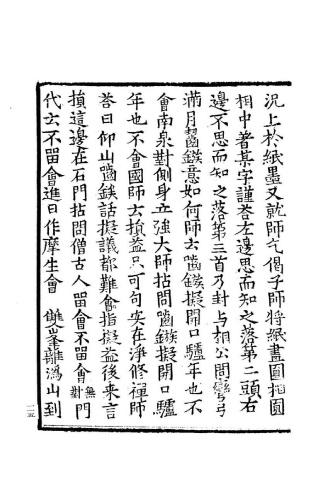 況上於紙墨又就師乞偈子師將紙畫圓相圓
相中著某字謹荅左邊思而知之落第二頭右
邊不思而知之落第三首乃封与相公問彎弓
滿月齧鏃意如何師云齧鏃擬開口驢年也不
會南泉對側身立強大師拈問齧鏃擬開口驢
年也不會國師云損益只可句安在淨修禪師
荅曰仰山齧鏃話擬議都難會指擬益後来言
損這邊在石門拈問僧古人留會不留會對無門
代云不留會進曰作摩生會 雙峯離溈山到